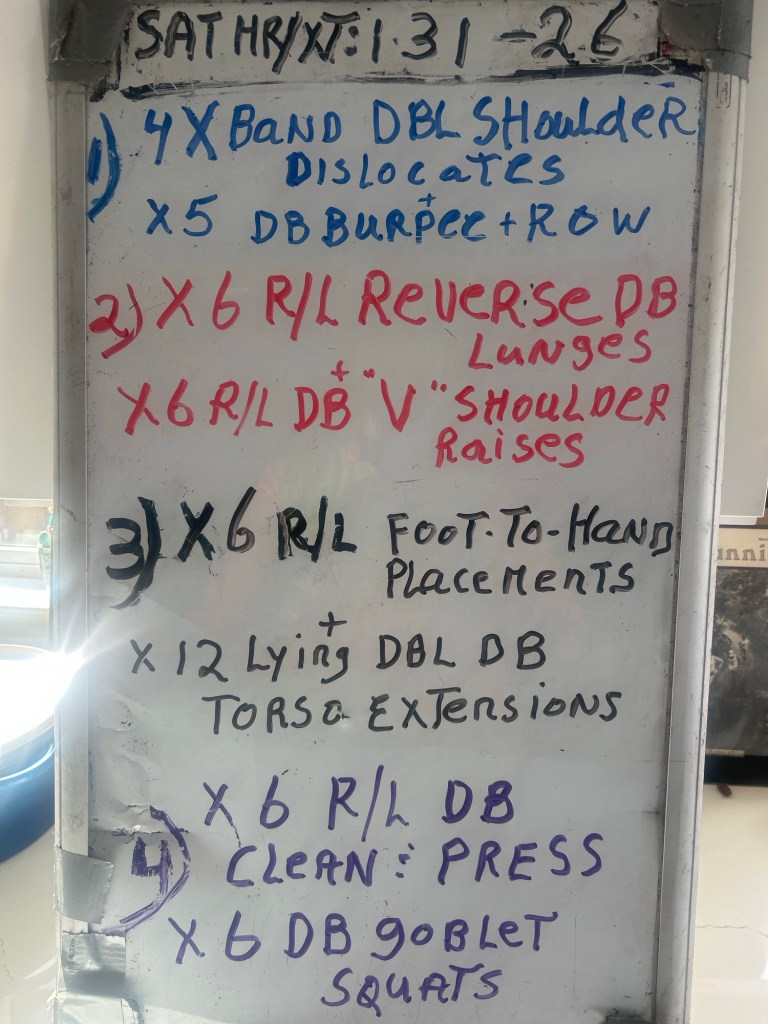 SAT HR/XT: 1.31-26
1) 4X BAND DBL SHOULDER
DISLOCATES
+
X5 DB BURPEE + ROW
2) X 6 R/L REVERSE DB
LUNGES
+
X6 R/L DB "V" SHOULDER
RAISES
3) X 6 R/L FOOT-TO-HAND
PLACEMENTS
+
X 12 Lying DBL DB
TORSO EXTENSIONS
4) X 6 R/L DB
CLEAN : PRESS
X 6 DB GOBLET
SQUATS